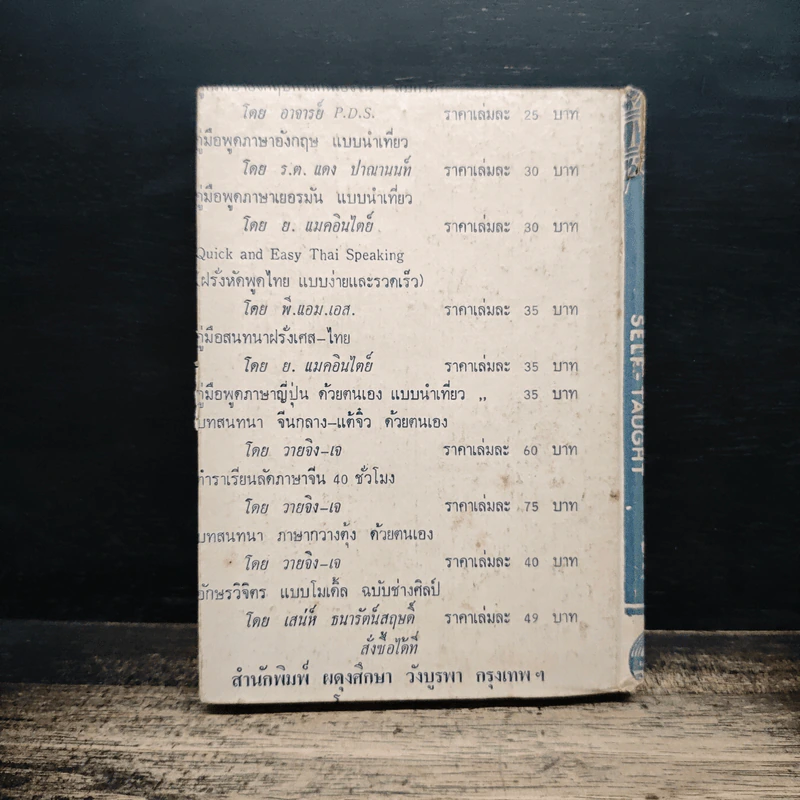 โดย อาจารย์ P.D.S. ราคาเล่มละ 25 บาท
คู่มือพูดภาษาอังกฤษ แบบนำเที่ยว
โดย ร.ต. แดง ปาณานนท์ ราคาเล่มละ 30 บาท
คู่มือพูดภาษาเยอรมัน แบบนำเที่ยว
โดย ย. แมคอินไตย์ ราคาเล่มละ 30 บาท
Quick and Easy Thai Speaking
(ฝรั่งหัดพูดไทย แบบง่ายและรวดเร็ว)
โดย พี.แอม.เอส. ราคาเล่มละ 35 บาท
คู่มือสนทนาฝรั่งเศส–ไทย
โดย ย. แมคอินไตย์ ราคาเล่มละ 35 บาท
คู่มือพูดภาษาญี่ปุ่น ด้วยตนเอง แบบนำเที่ยว ,, 35 บาท
บทสนทนา จีนกลาง–แต้จิ๋ว ด้วยตนเอง
โดย วายจิง–เจ ราคาเล่มละ 60 บาท
ตำราเรียนลัดภาษาจีน 40 ชั่วโมง
โดย วายจิง–เจ ราคาเล่มละ 75 บาท
บทสนทนา ภาษากวางตุ้ง ด้วยตนเอง
โดย วายจิง–เจ ราคาเล่มละ 40 บาท
อักษรวิจิตร แบบโมเด็ล ฉบับช่างศิลป์
โดย เสน่ห์ ธนารัตน์สฤษดิ์ ราคาเล่มละ 49 บาท
สั่งซื้อได้ที่
สำนักพิมพ์ ผดุงศึกษา วังบูรพา กรุงเทพ ฯ
SELF-TAUGHT